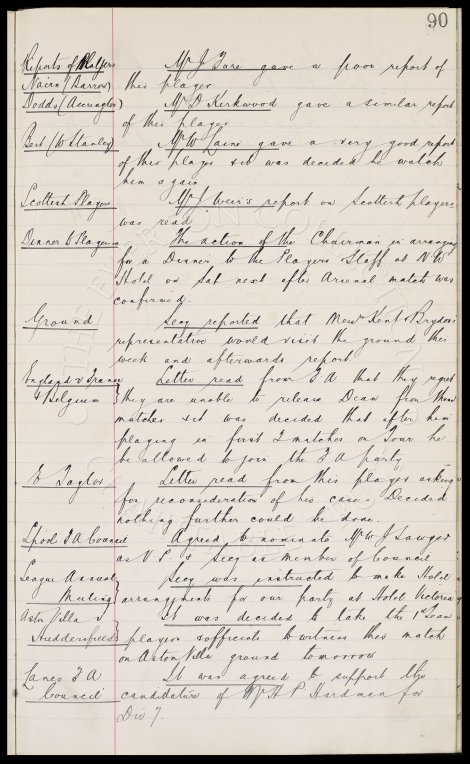 90
Reports of Players Mr J. Fare gave a poor report of
Nairn (Barrow) this player.
Dodds (Accrington) Mr D Kirkwood gave a similar report
of this player
Best (W Stanley) Mr W Lains gave a very good report
of this player & it was decided he watch
him again
Scottish Players Mr J Weir's report on Scottish players
was read
Dinner to Players The action of the Chairman in arranging
for a Dinner to the Players Staff at N.W
Hotel on Sat next after Arsenal match was
confirmed.
Ground Secy reported that Messrs Kent & Brydon's
representative would visit the ground this
week and afterwards report
England v France Letter read from F A that they regret
& Belgium } they are unable to release Dean from these
matches & it was decided that after him
playing in first 2 matches on Tour he
be allowed to join the F A party
E Taylor Letter read from this player asking
for reconsideration of his case - Decided
nothing further could be done.
Lpool F A Council Agreed to nominate Mr W J Sawyer
as V. P. & Secy as member of Council
League Annual Secy was instructed to make Hotel
Meeting } arrangements for our party at Hotel Victoria
Aston Villa v It was decided to take the 1st Team
Huddersfield } players & officials to witness this match
on Aston Villa ground tomorrow
Lancs F A It was agreed to support the
Council candidature of Mr H P Hardman for
Div 7.